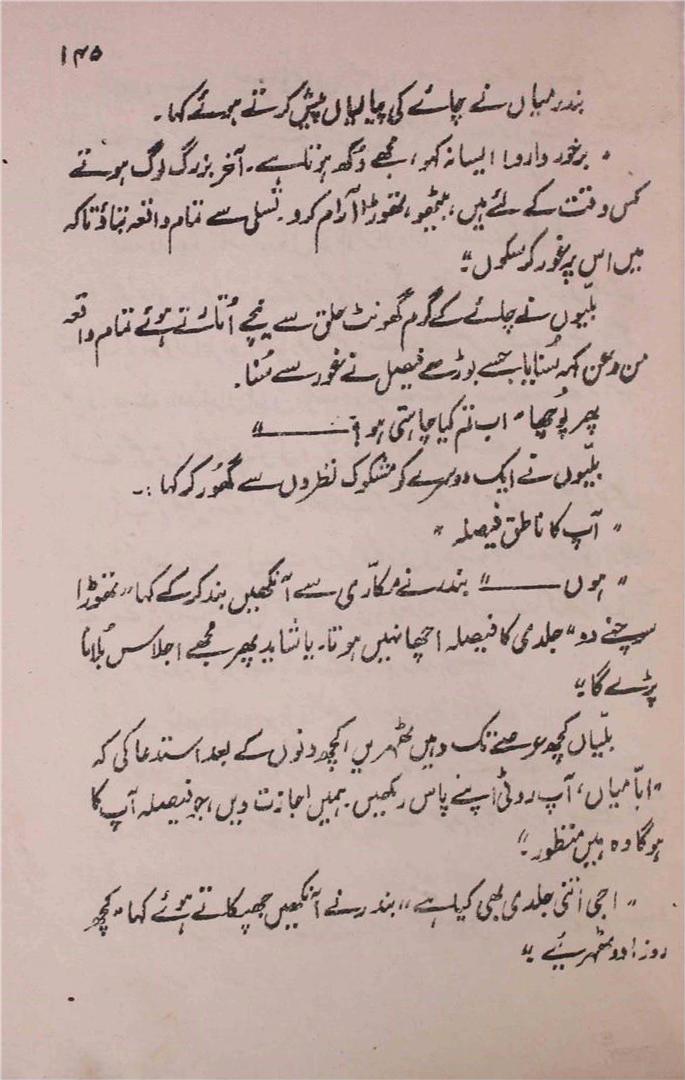 ۱۴۵
بندر میاں نے چائے کی پیالیاں پیش کرتے ہوئے کہا۔
" برخوردارو! ایسا نہ کہو، مجھے دکھ ہوتا ہے۔ آخر بزرگ لوگ ہوتے
کس وقت کے لئے ہیں، بیٹھو، تھوڑا آرام کرو۔ تسلی سے تمام واقعہ بتاؤ تاکہ
میں اس پر غور کر سکوں۔"
بلّیوں نے چائے کے گرم گھونٹ حلق سے نیچے اُتارتے ہوئے تمام واقعہ
من و عن کہہ سُنایا جسے بوڑھے فیصل نے غور سے سُنا۔
پھر پُوچھا " اب تم کیا چاہتی ہو؟ ——"
بلّیوں نے ایک دوسرے کو مشکوک نظروں سے گھُور کر کہا :۔
" آپ کا ناطق فیصلہ "
" ہوں ——" بندر نے مکّاری سے آنکھیں بند کر کے کہا " تھوڑا
سوچنے دو" جلدی کا فیصلہ اچھا نہیں ہوتا۔ یا شاید پھر مجھے اجلاس بُلانا
پڑے گا۔"
بلّیاں کچھ عرصے تک وہیں ٹھہریں، کچھ دنوں کے بعد استدعا کی کہ
"ابّا میاں، آپ روٹی اپنے پاس رکھیں۔ ہمیں اجازت دیں، جو فیصلہ آپ کا
ہوگا وہ ہمیں منظور۔"
" اجی اتنی جلدی بھی کیا ہے" بندر نے آنکھیں جھپکاتے ہوئے کہا " کچھ
روز اور ٹھہریئے "